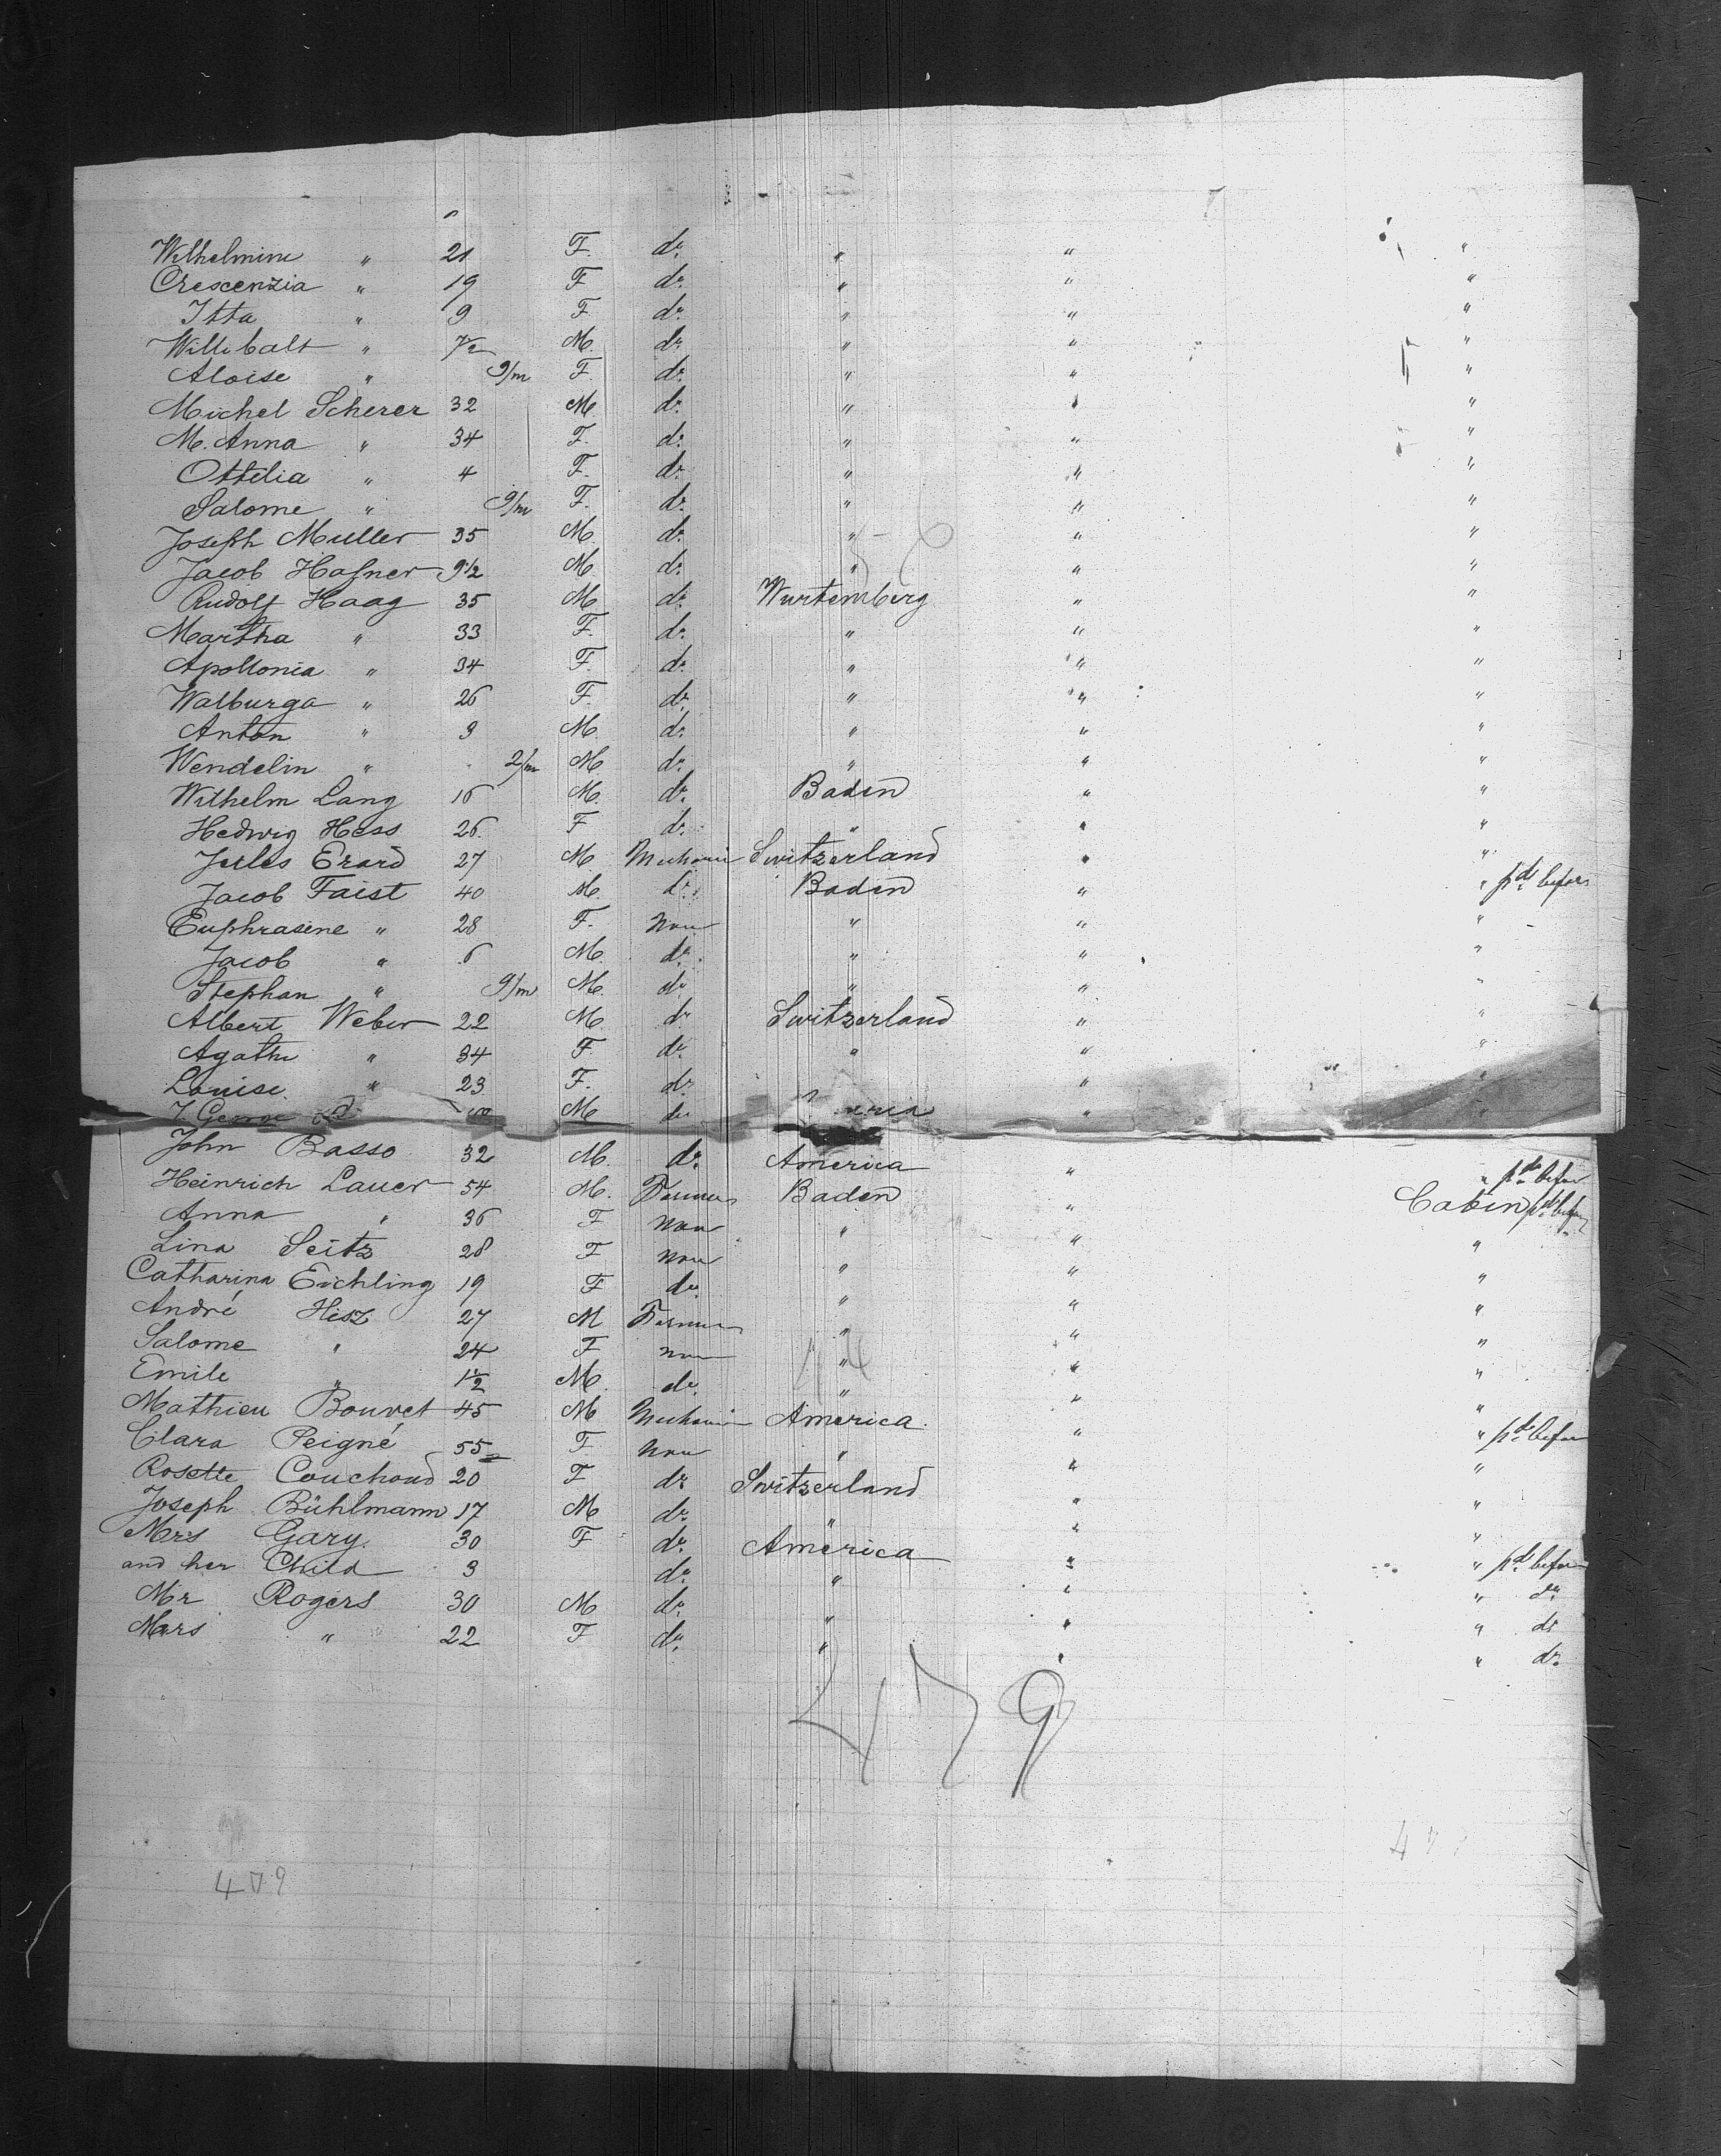 Wilhelmine " 21 F. do. " " "
Crescenzia " 19 F do. " " "
Itta " 9 F do. " " "
Willibalt " 7/2 M. do " " "
Aloise " 9/m F. do. " " "
Michel Scherer 32 M. do. " " "
M. Anna " 34 F. do. " " "
Ottilia " 4 F. do. " " "
Salome " 9/m F. do. " " "
Joseph Muller 35 M. do. " " "
Jacob Hafner 9 1/2 M do. " " "
Rudolf Haag 35 M do. Wurtemberg " "
Martha " 33 F. do. " " "
Apollonia " 34 F. do. " " "
Walburga " 26 F. do. " " "
Anton " 3 M. do. " " "
Wendelin " 2/m M do. " " "
Wilhelm Lang 16 M. do. Baden " "
Hedwig Hess 26 F do. " " "
Jules Erard 27 M Mechanic Switzerland " "
Jacob Faist 40 M. do. Baden " " pd. before
Euphrasine " 28 F. none " " "
Jacob " 6 M. do. " " "
Stephan " 9/m M. do " " "
Albert Weber 22 M. do Switzerland " "
Agathe " 34 F do. " " "
Louise " 23 F. do. " "
J. George M do " "
John Basso 32 M. do. America " " pd. before
Heinrich Lauer 54 M. Farmer Baden " Cabin pd. before
Anna " 36 F none " " "
Lina Seitz 28 F none " " "
Catharina Eichling 19 F do. " " "
André Hisz 27 M Farmer " " "
Salome " 24 F none " " "
Emile " 1 1/2 M. do. " " "
Mathieu Bouvet 45 M Mechanic America. " " pd. before
Clara Peigné 55 F none " " "
Rosette Couchoud 20 F do Switzerland " "
Joseph Bühlmann 17 M do. " " "
Mrs Gary. 30 F do. America " " pd. before
and her Child 3 do. " " " do.
Mr Rogers 30 M do. " " " do
Mrs " 22 F do. " " " do.
479
479